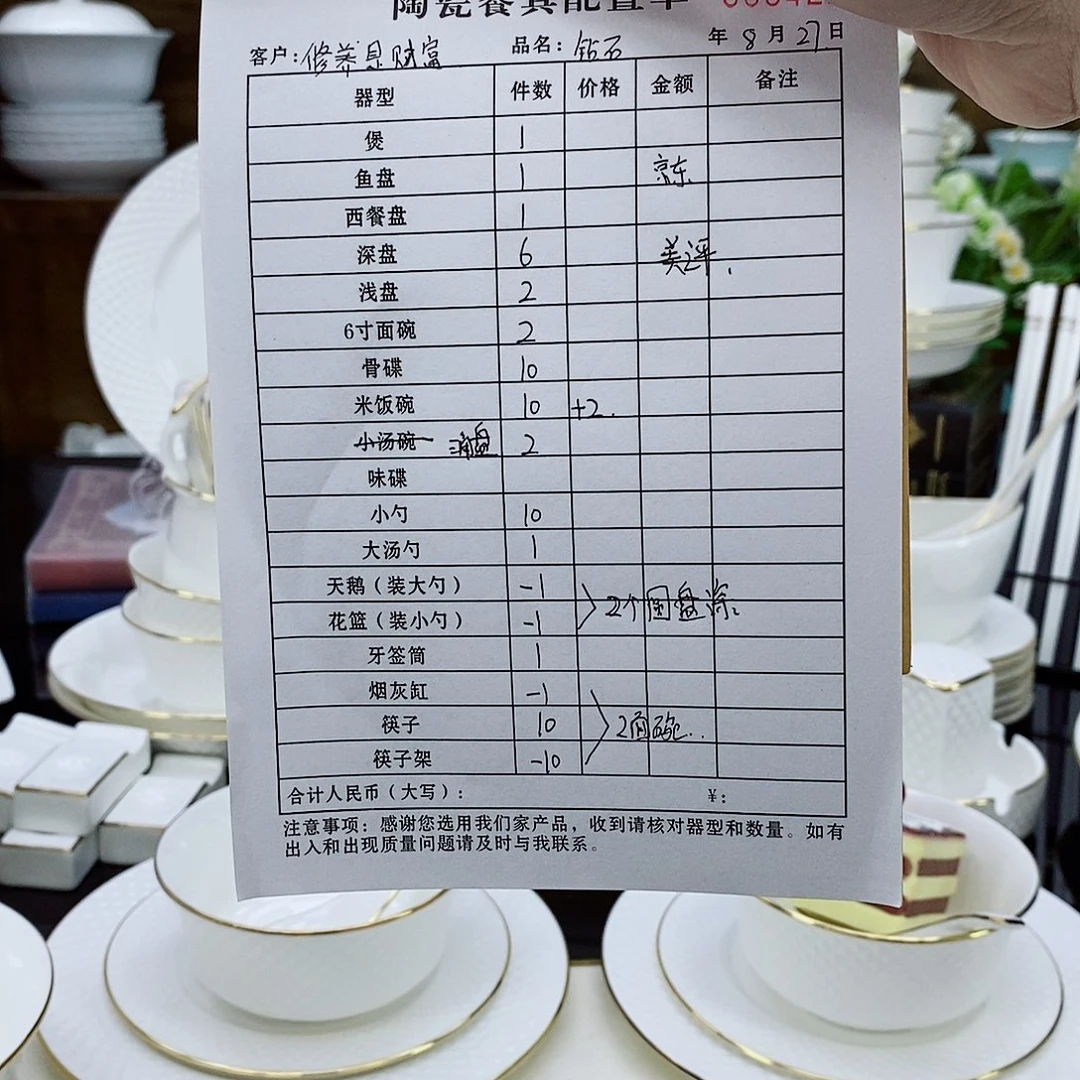 陶瓷餐具配置单
客户：修养是财富 品名：钻石 年 8 月 27 日
器型 件数 价格 金额 备注
煲 1
鱼盘 1 京东
西餐盘 1
深盘 6 美评.
浅盘 2
6寸面碗 2
骨碟 10
米饭碗 10 +2.
小汤碗 盘 2
味碟
小勺 10
大汤勺 1
天鹅（装大勺） -1
花篮（装小勺） -1 2个圆盘深.
牙签筒 1
烟灰缸 -1
筷子 10 2面碗..
筷子架 -10
合计人民币（大写）： ￥：
注意事项：感谢您选用我们家产品，收到请核对器型和数量。如有
出入和出现质量问题请及时与我联系。